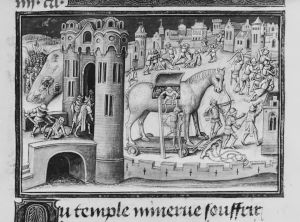 Du temple minerue souffrir